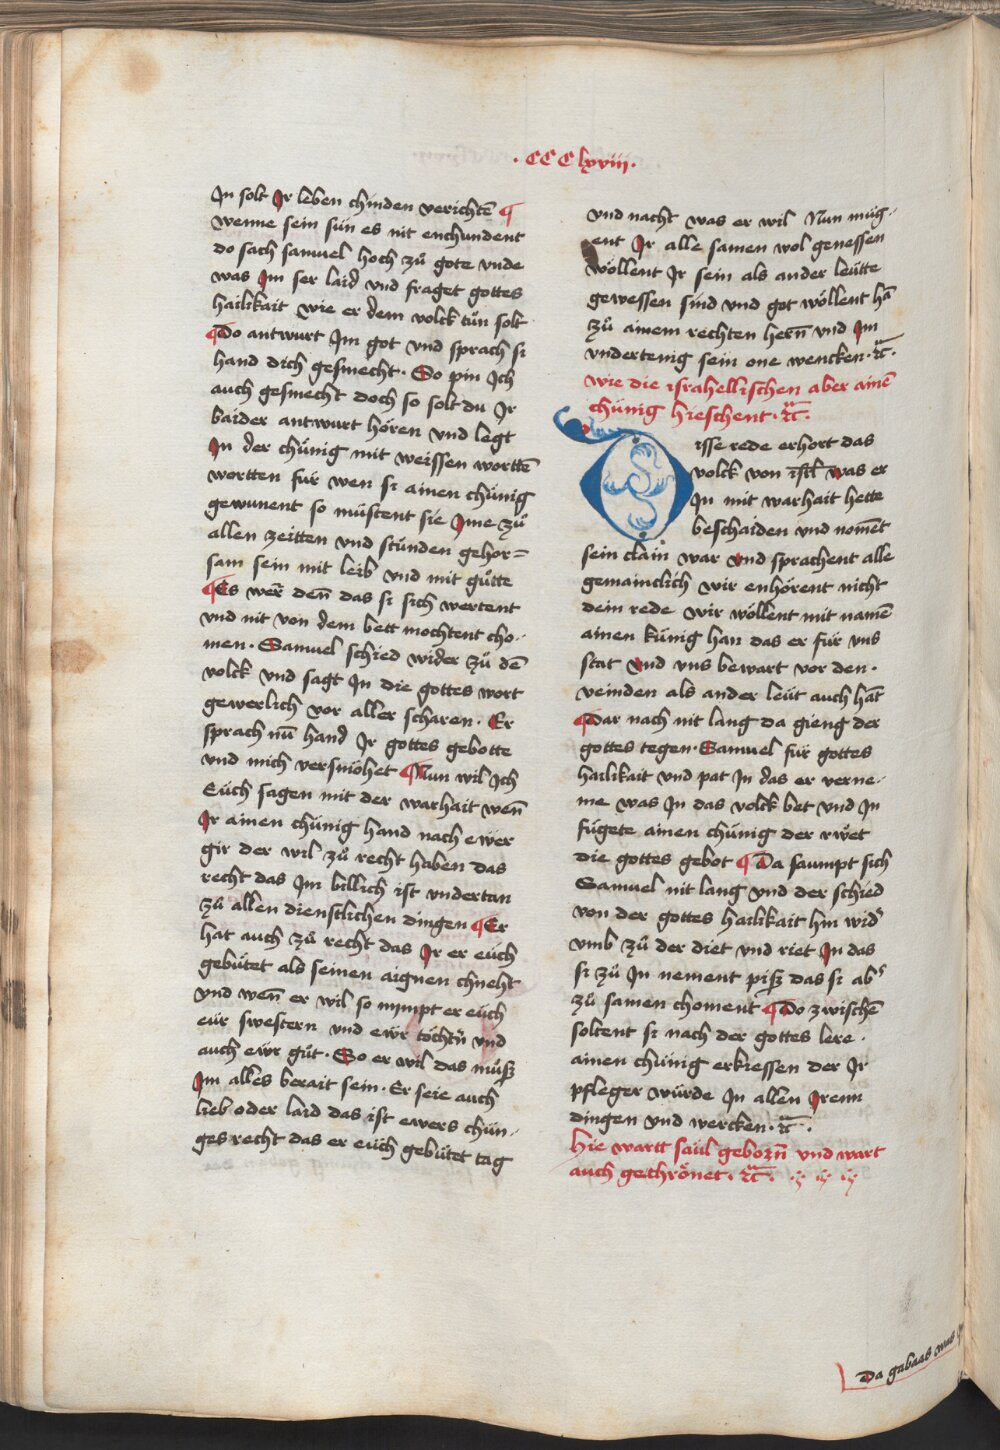 · CCClxviii ·
In solt Ir leben chinden verichtē ¶
wenne sein sün es nit enchundent
do sach samuel hoch zů gote vnde
was Im ser laid vnd fraget gottes
hailikait wie er dem volck tůn solt
¶ Do antwurt Im got vnd sprach si
hand dich gesmecht · So pin Ich
auch gesmecht doch so solt du Ir
baider antwurt hören vnd legt
In der chünig mit weissen worttē
wortten für wen si ainen chünig
gewunent so müstent sie Ime zů
allen zeitten vnd stunden gehor=
sam sein mit leib vnd mit gütte
¶ Es wer den̄ das si sich wertent
vnd nit von dem bett mochtent cho-
men · Samuel schied wider zů dē
volck vnd sagt In die gottes wort
gewerlich vor aller scharen · Er
sprach nū hand Ir gottes gebotte
vnd mich versmöhet ¶ Nun wil Ich
Eüch sagen mit der warhait wen̄
Ir ainen chünig hand nach ewer
gir der wil zů recht haben das
recht das Im billich ist vndertan
zů allen dienstlichen dingen ¶ Er
hat auch zů recht das Ir er eüch
gebütet als seinen aignen chneht
vnd wen̄ er wil so nympt er eüch
eür swestern vnd ewr töchtn̄ vnd
auch ewr gůt · So er wil das můsz
Im alles berait sein · Er seie auch
lieb oder laid das ist ewers chün-
ges recht das er eüch gebütet tag
vnd nacht was er wil Nun müg-
ent Ir alle samen wol genessen
wöllent Ir sein als ander leütte
gewessen sind vnd got wöllent hā
zů ainem rechten hern̄ vnd Im
vndertenig sein one wencken · ꝛc̄ ·
wie die israhellischen aber ainē
chünig hieschent · ꝛc̄ ·
Disse rede erhort das
volck von isrl̄ was er
In mit warhait hette
beschaiden vnd nomēt
sein clain war vnd sprachent alle
gemainclich wir enhörent nicht
dein rede wir wöllent mit namē
ainen künig han das er für vns
stat vnd vns bewart vor den ·
veinden als ander leüt auch hāt
¶ Dar nach nit lang da gieng der
gottes tegen · Samuel für gottes
hailikait vnd pat In das er verne-
me was In das volck bet vnd In
fügete ainen chünig der rwet
die gottes gebot ¶ Da saumpt sich
Samuel nit lang vnd der schied
von der gottes hailikait hin wid͛
vmb zů der diet vnd riet In das
si zů In nement pisz das si ab͛
zů samen choment ¶ Do zwischē
soltent si nach der gottes lere ·
ainen chünig erkiessen der Ir
pfleger würde In allen Irenn
dingen vnd wercken · ꝛc̄ ·
Hie wartt saül geborn̄ vnd wart
auch gethrönet · ꝛc̄ ·
Da gabaas